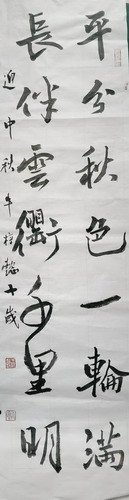 平分秋色一輪滿
長伴雲衢千里明
迎中秋 年 十歲